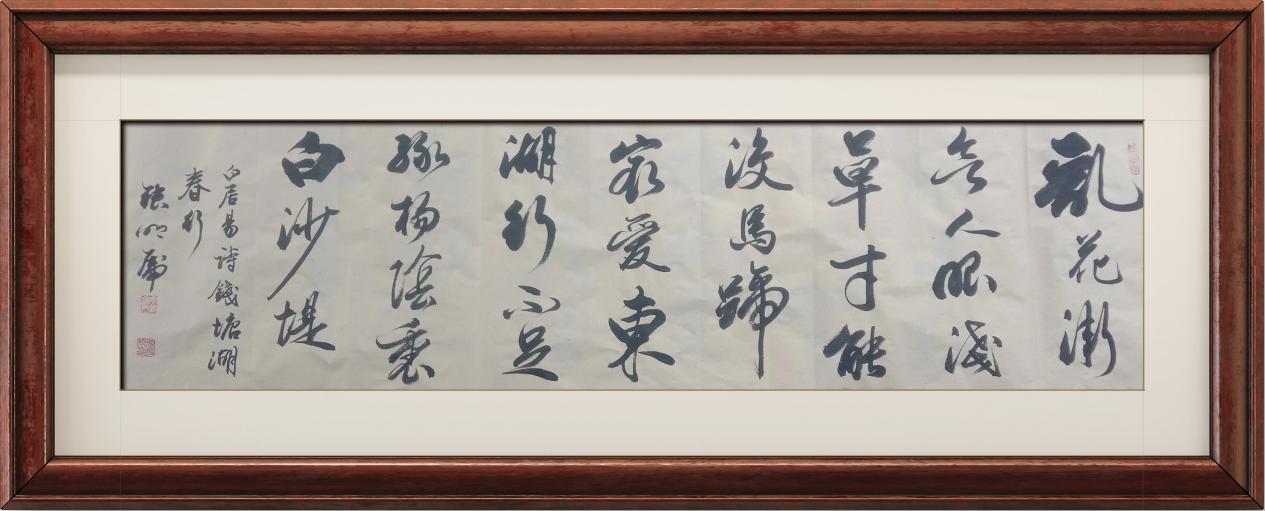 亂花漸
人眼淺
草才能
沒馬蹄
最愛東
湖行不足
綠楊陰裏
白沙堤
白居易詩錢塘湖
春行
張